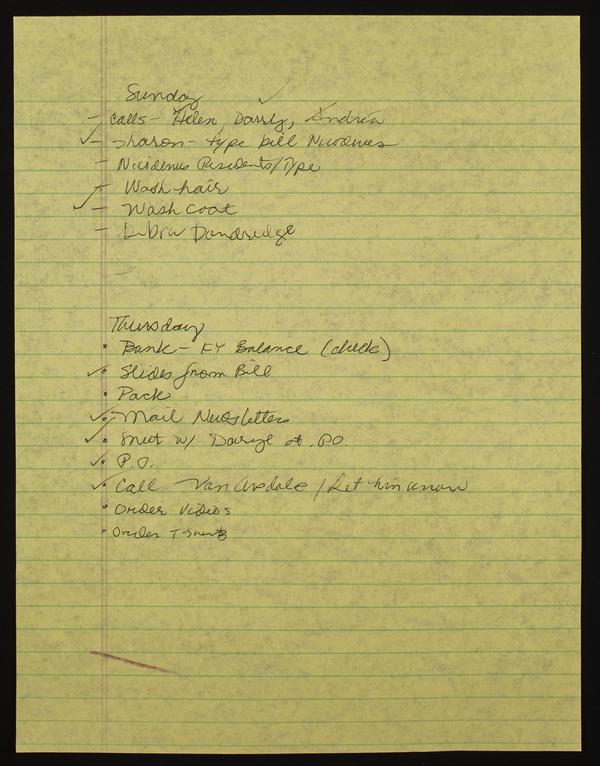 Sunday
- Calls - Helen, Darryl, Andrea
- Sharon - type bill Nicodemus
- Nicodemus Residents/Type
- Wash hair
- Wash coat
- Debra Dandridge
-
Thursday
• Bank - KY Balance (check)
• Slides from Bill
• Pack
• Mail Newsletters
• Meet w/ Darryl at P.O.
• P.O.
• Call Van Arsdale / Let him know
• Order Videos
• Order T-Shirts